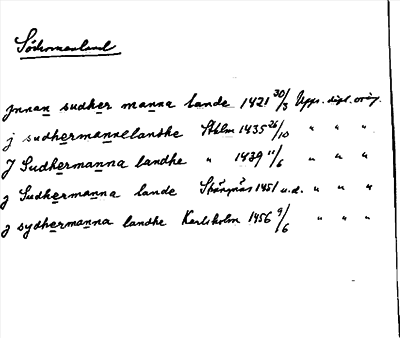 Södermanland
jnnan sudher manna lande 1421 30/3 Upps. dipl. orig.
j sudhermannelandhe Sthlm 1435 26/10 " " "
J Sudhermanna landhe " 1439 11/6 " " "
j Sudhermanna lande Strängnäs 1451 u.d. " " "
j sydhermanna landhe Karlsholm 1456 9/6 " " "